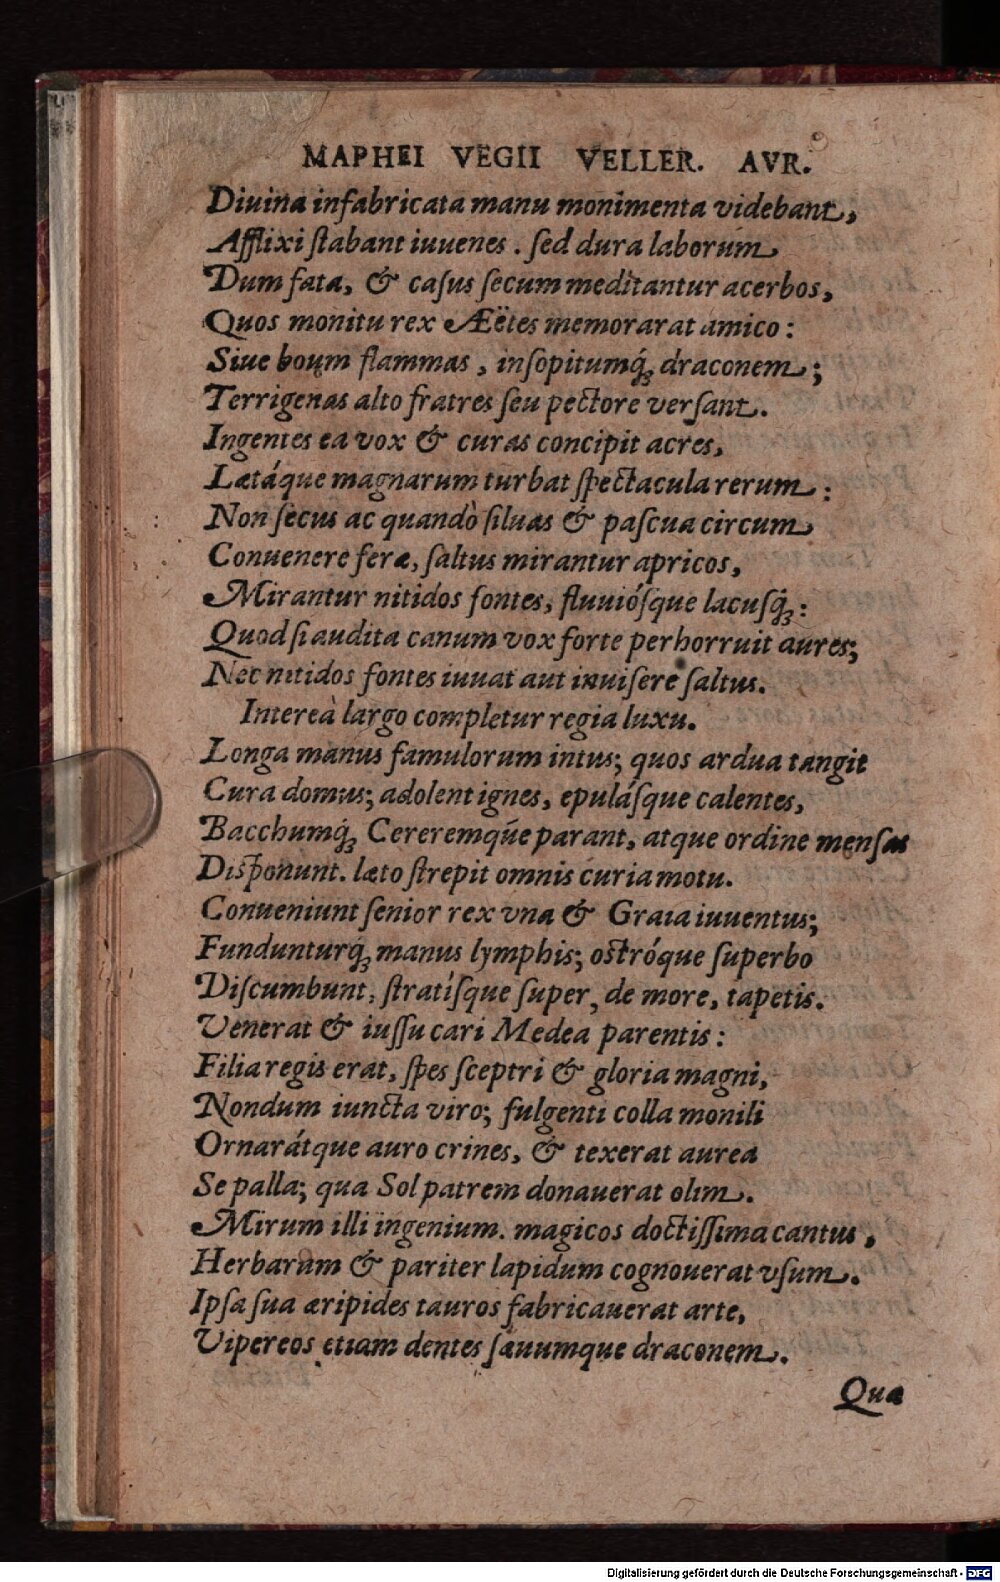 MAPHEI VEGII VELLER. AVR.
Diuina infabricata manu monimenta videbant,
Afflixi ſtabant iuuenes. ſed dura laborum
Dum fata, & caſus ſecum meditantur acerbos,
Quos monitu rex Æëtes memorarat amico:
Siue boum flammas, inſopitumq́ꝫ draconem;
Terrigenas alto fratres ſeu pectore verſant.
Ingentes ea vox & curas concipit acres,
Lætáque magnarum turbat ſpectacula rerum:
Non ſecus ac quandò ſiluas & paſcua circum
Conuenere feræ, ſaltus mirantur apricos,
Mirantur nitidos fontes, fluuióſque lacuſq́ꝫ:
Quod ſi audita canum vox forte perhorruit aures;
Nec nitidos fontes iuuat aut inuiſere ſaltus.
Intereà largo completur regia luxu.
Longa manus famulorum intus; quos ardua tangit
Cura domus; adolent ignes, epuláſque calentes,
Bacchumq́ꝫ Cereremq́ue parant, atque ordine menſas
Diſponunt. læto ſtrepit omnis curia motu.
Conueniunt ſenior rex vna & Graia iuuentus;
Fundunturq́ꝫ manus lymphis; oſtróque ſuperbo
Diſcumbunt, ſtratíſque ſuper, de more, tapetis.
Venerat & iuſſu cari Medea parentis:
Filia regis erat, ſpes ſceptri & gloria magni,
Nondum iuncta viro; fulgenti colla monili
Ornarátque auro crines, & texerat aurea
Se palla; qua Sol patrem donauerat olim.
Mirum illi ingenium. magicos doctiſſima cantus,
Herbarum & pariter lapidum cognouerat vſum.
Ipſa ſua æripides tauros fabricauerat arte,
Vipereos etiam dentes ſæuumque draconem.
Qua
Digitalisierung gefördert durch die Deutsche Forschungsgemeinschaft - DFG